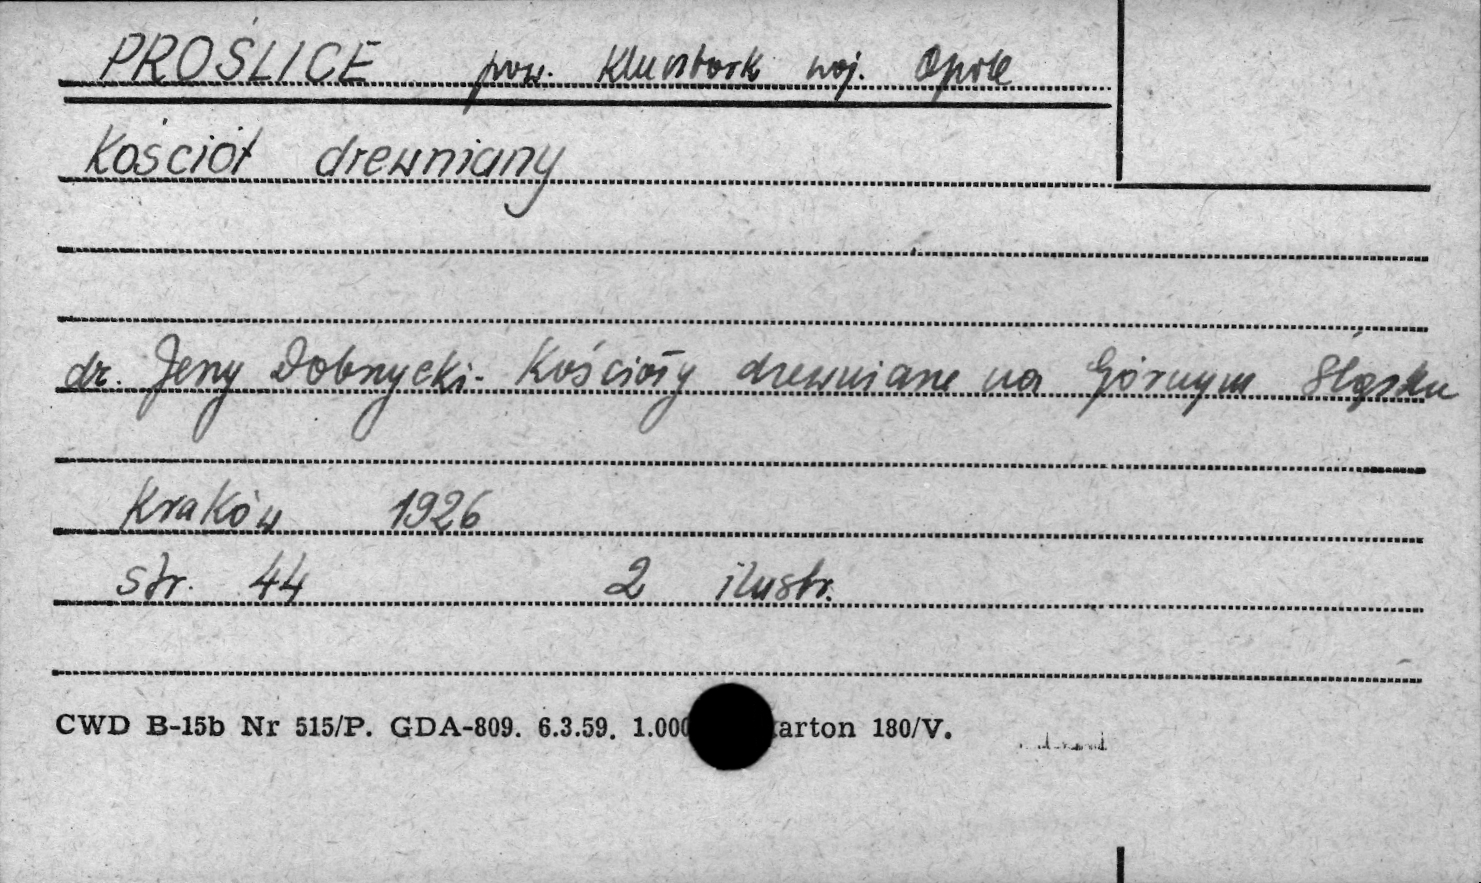 PROŚLICE pow. Kluczbork woj. Opole
Kościół drewniany
dr. Jerzy Dobrzycki - Kościoły drewniane na Górnym Śląsku
Kraków 1926
str. 44 2 ilustr.
CWD B-15b Nr 515/P. GDA-809. 6.3.59. 1.000 arton 180/V.